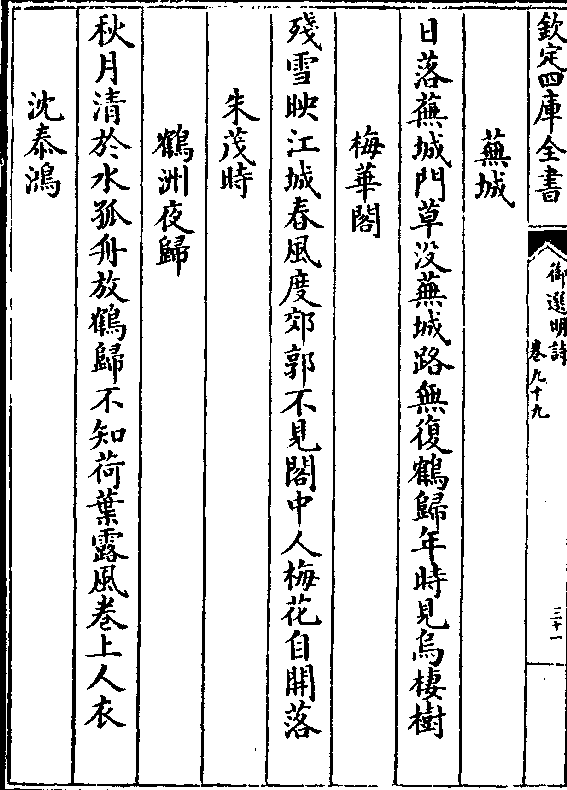 欽定四庫全書
御選明詩
卷九十九
三十一
蕪城
日落蕪城門草没蕪城路無復鶴歸年時見烏棲樹
梅華閣
殘雪映江城春風度郊郭不見閣中人梅花自開落
朱茂時
鶴洲夜歸
秋月清於水孤舟放鶴歸不知荷葉露風卷上人衣
沈泰鴻